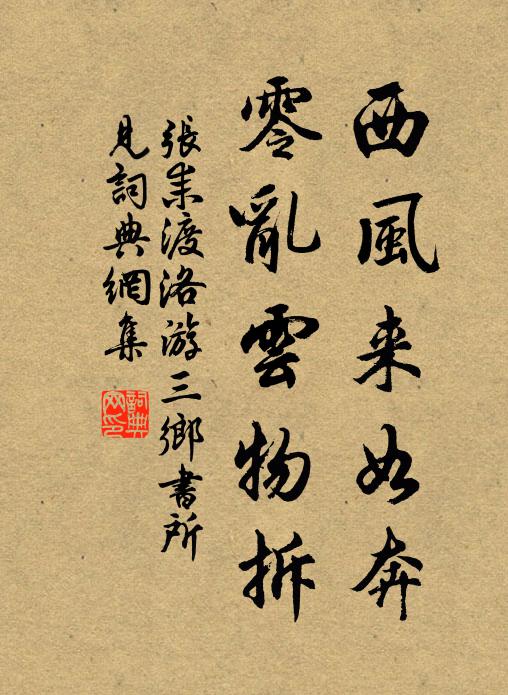 西風来如奔
零亂雲物拆
張耒渡洛游三鄉書所
見詞典網集
詞典
网印